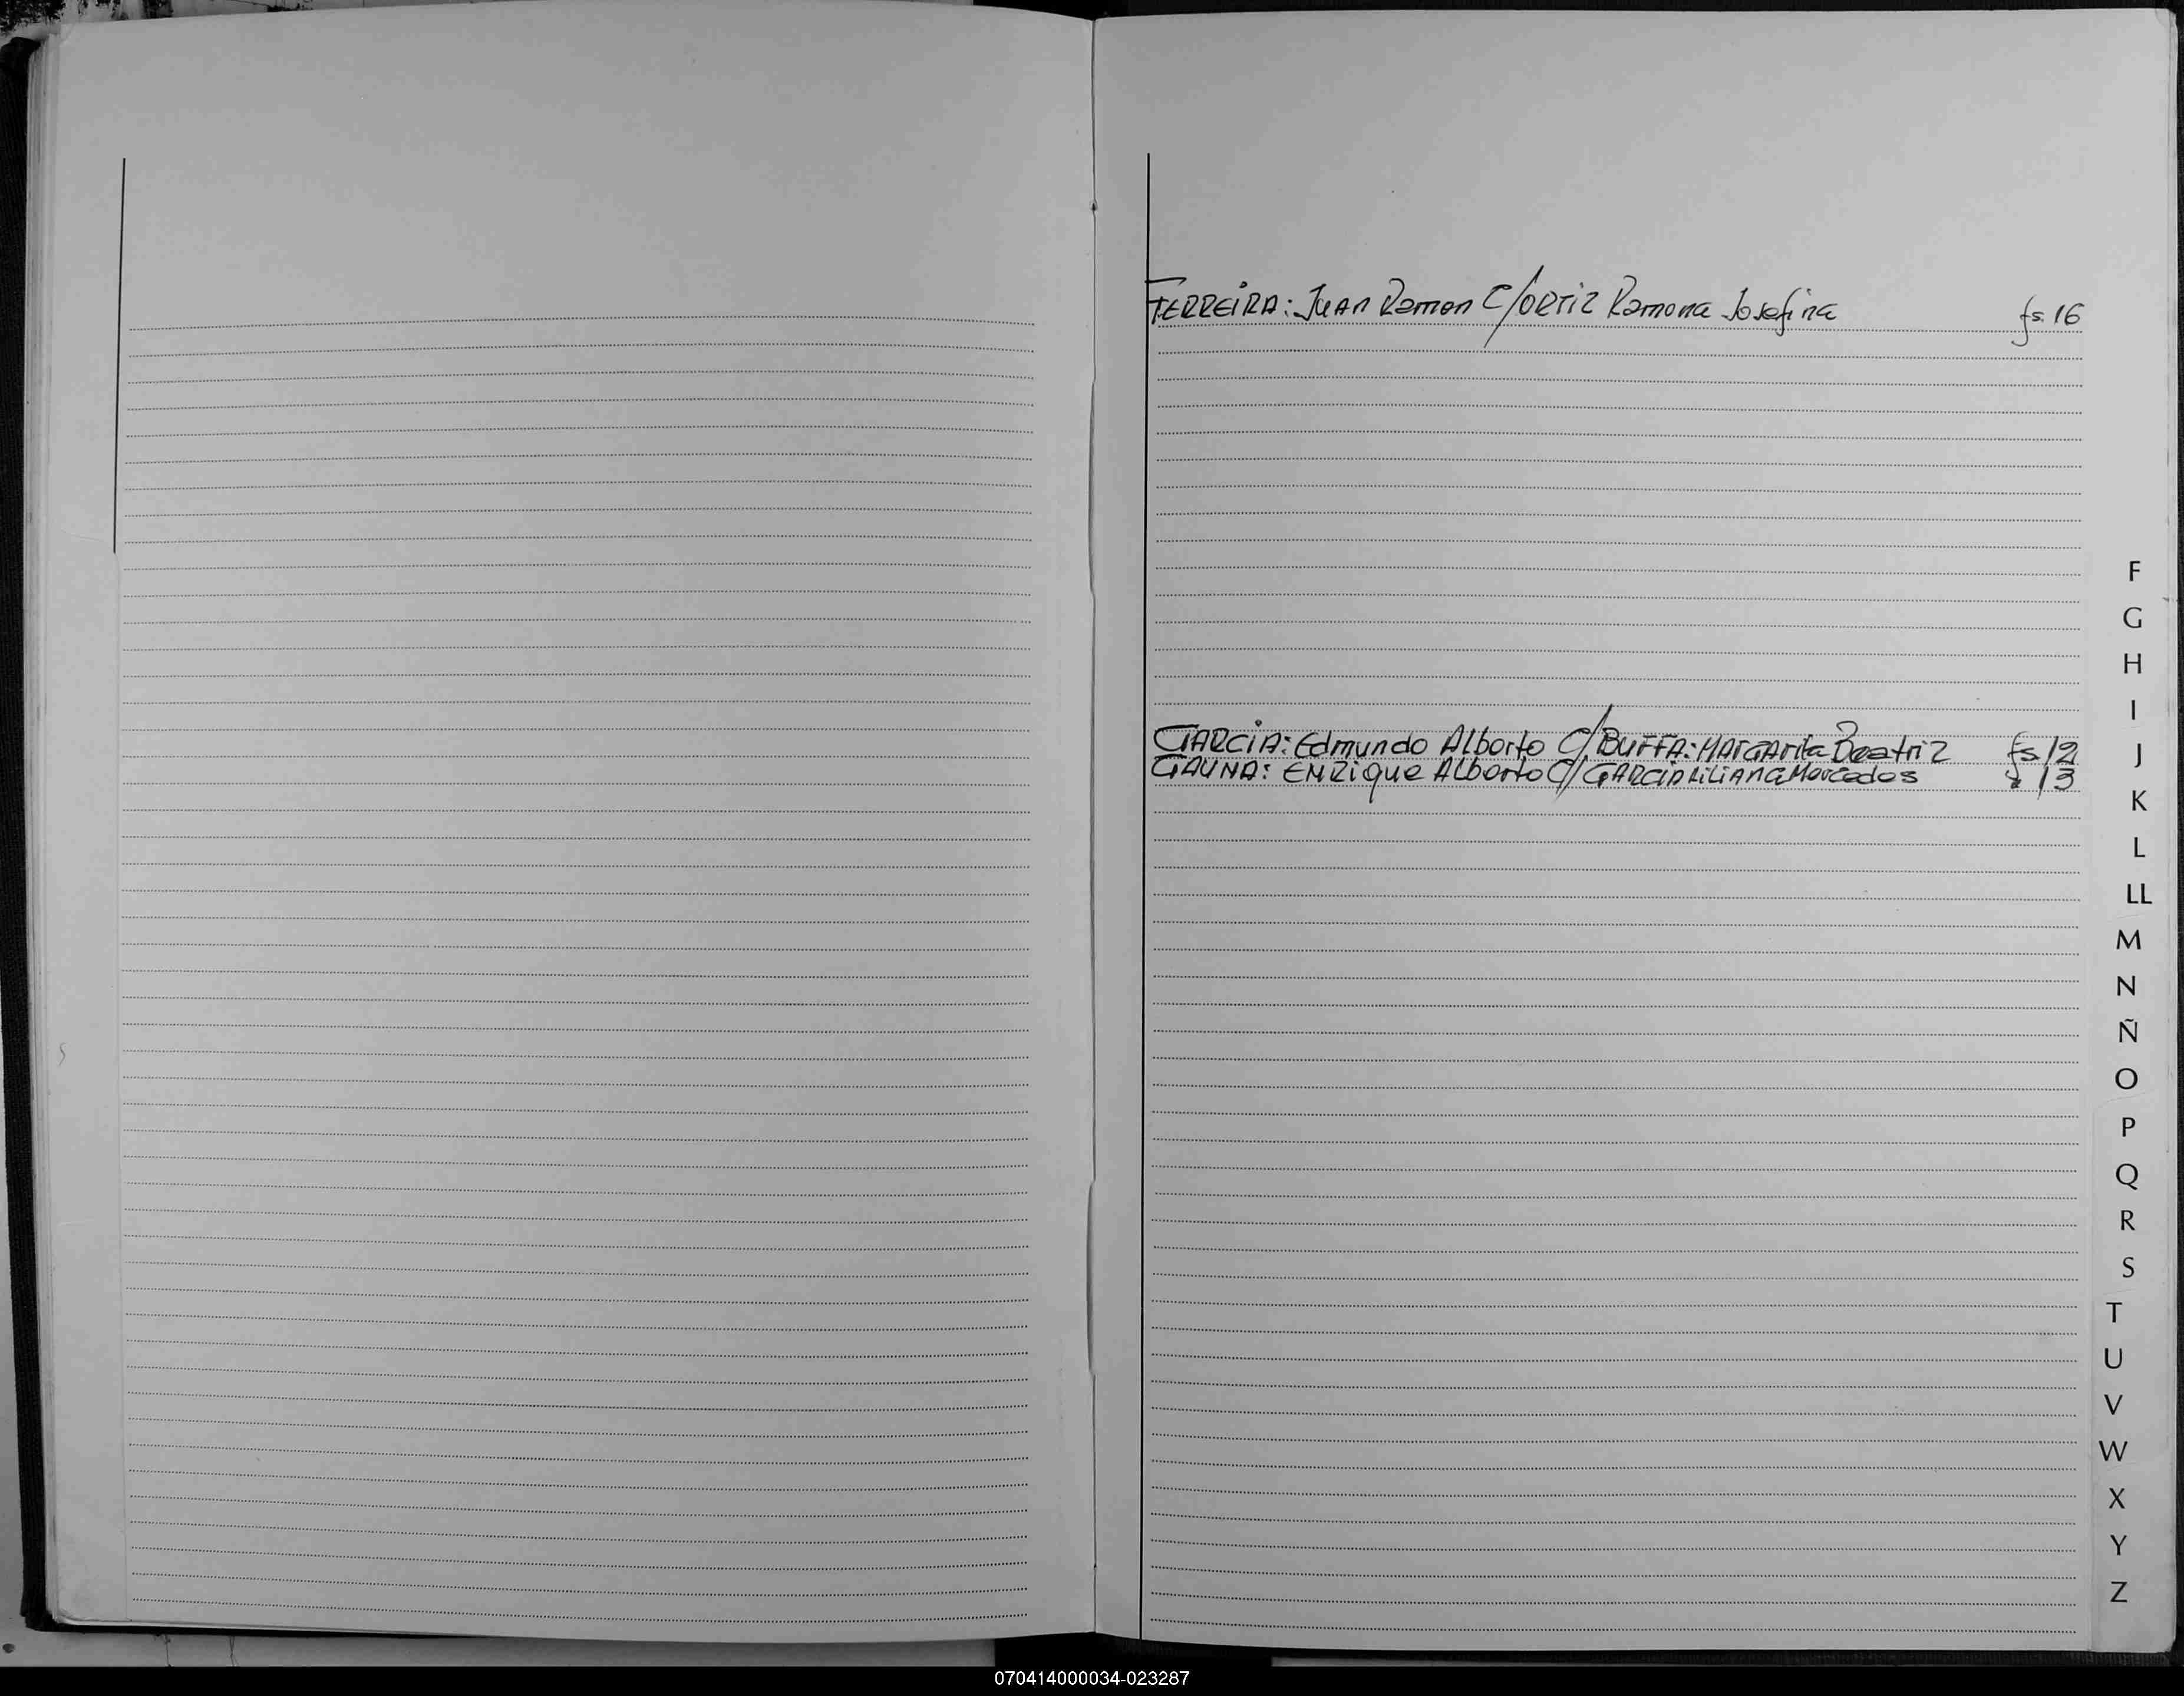 FERREIRA: Juan Ramon C/ ORTIZ Ramona Josefina fs. 16
F
G
H
I
GARCIA: Edmundo Alberto C/ BUFFA: Margarita Beatriz fs 12
J
GAUNA: ENRique Alberto C/ GARCIA LiLiANA Mercedes " 13
K
L
LL
M
N
Ñ
O
P
Q
R
S
T
U
V
W
X
Y
Z
070414000034-023287